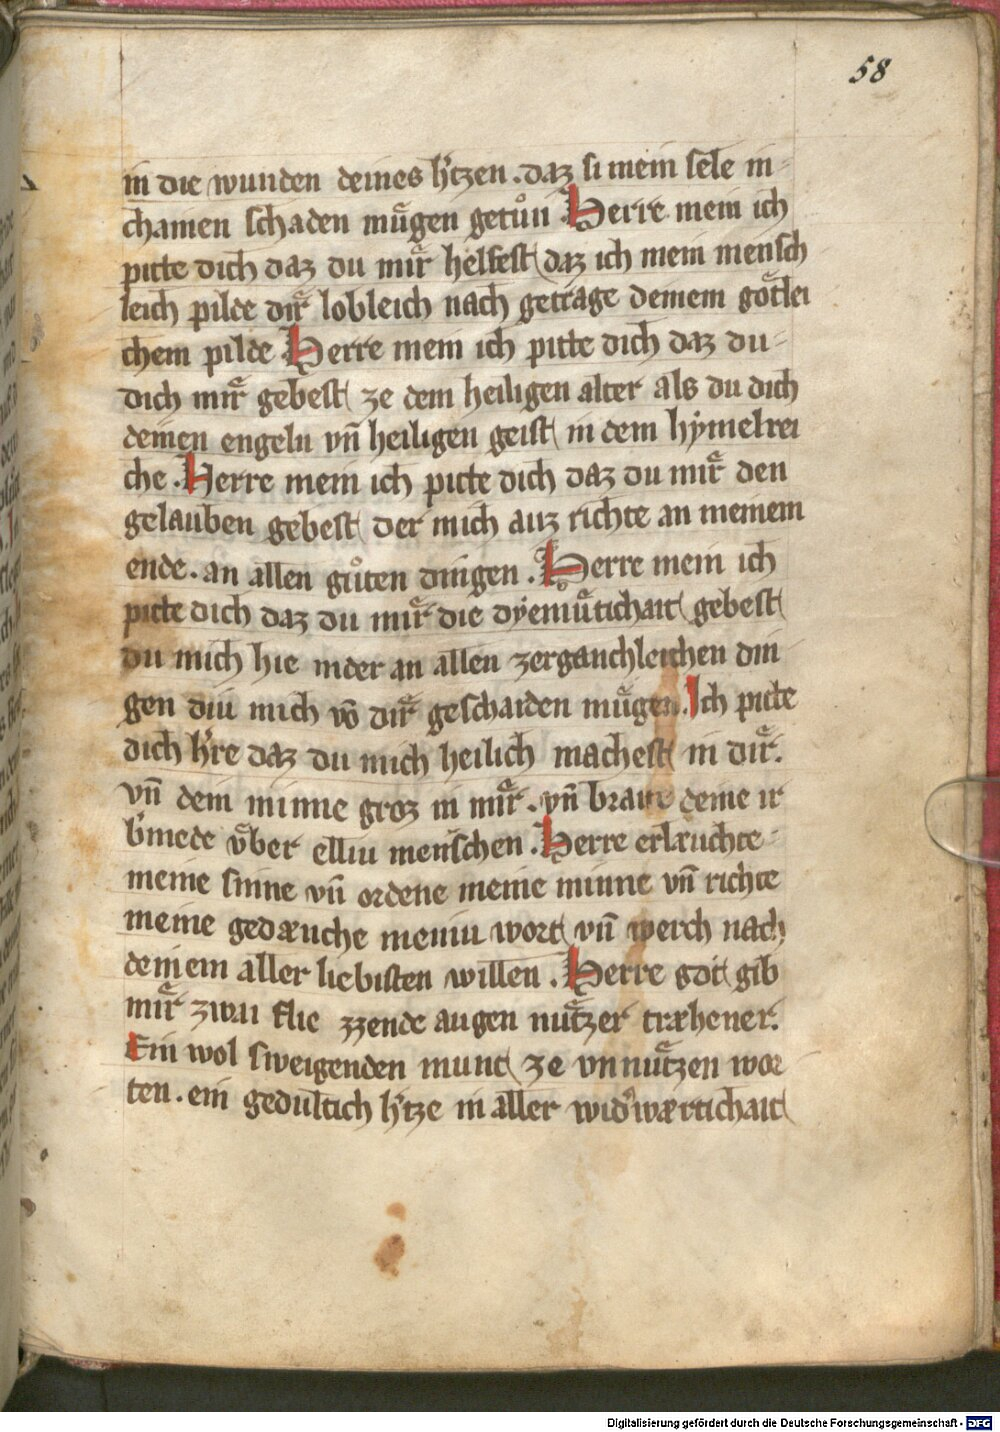 58
in die wunden deines h'tzen . daz si mein sele in-
chainen schaden muͤgen getuͦn Herre mein ich
pitte dich daz du mir helfest daz ich mein mensch
leich pilde dir lobleich nach getrage deinem goͤtlei
chem pilde Herre mein ich pitte dich daz du-
dich mir gebest ze dem heiligen alter als du dich
deinen engeln vn̄ heiligen geist in dem hymelrei
che . Herre mein ich pitte dich daz du mir den
gelauben gebest der mich auz richte an meinem
ende . an allen guͦten dingen . Herre mein ich
pitte dich daz du mir die dyemuͤtichait gebest
du mich hie nider an allen zerganchleichen din
gen diu mich vō dir geschaiden muͤgen . Ich pitte
dich h're daz du mich heilich machest in dir .
vn̄ dein minne groz in mir . vn̄ braite deine ir
b'mede vͤber elliu menschen . Herre erlæuchte-
meine sinne vn̄ ordene meine minne vn̄ richte
meine gedæuche meiniu wort vn̄ werch nach
deinem aller liebisten willen . Herre got gib
mir zwai flie zzende augen nuͤtzer træhener .
Ein wol sweigenden munt ze vnnuͤtzen wor
ten . ein gedultich h'tze in aller wid'wærtichait
Digitalisierung gefördert durch die Deutsche Forschungsgemeinschaft - DFG